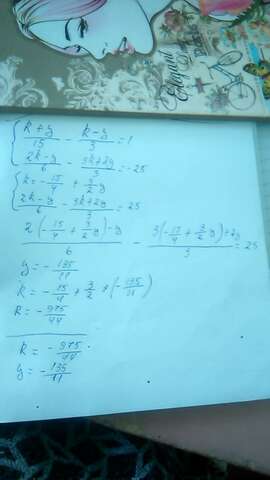 Elegant
{ k+y/15 - k-y/3 = 1
2k-y/6 - 3k+2y/3 = -25
{ k = -15/4 + 3/2 y
2k-y/6 - 3k+2y/3 = 25
2(-15/4 + 3/2 y)-y/6 - 3(-15/4 + 3/2 y)+2y/3 = 25
y = -135/11
k = -15/4 + 3/2 + (-135/11)
k = -975/44
k = -975/44
y = -135/11